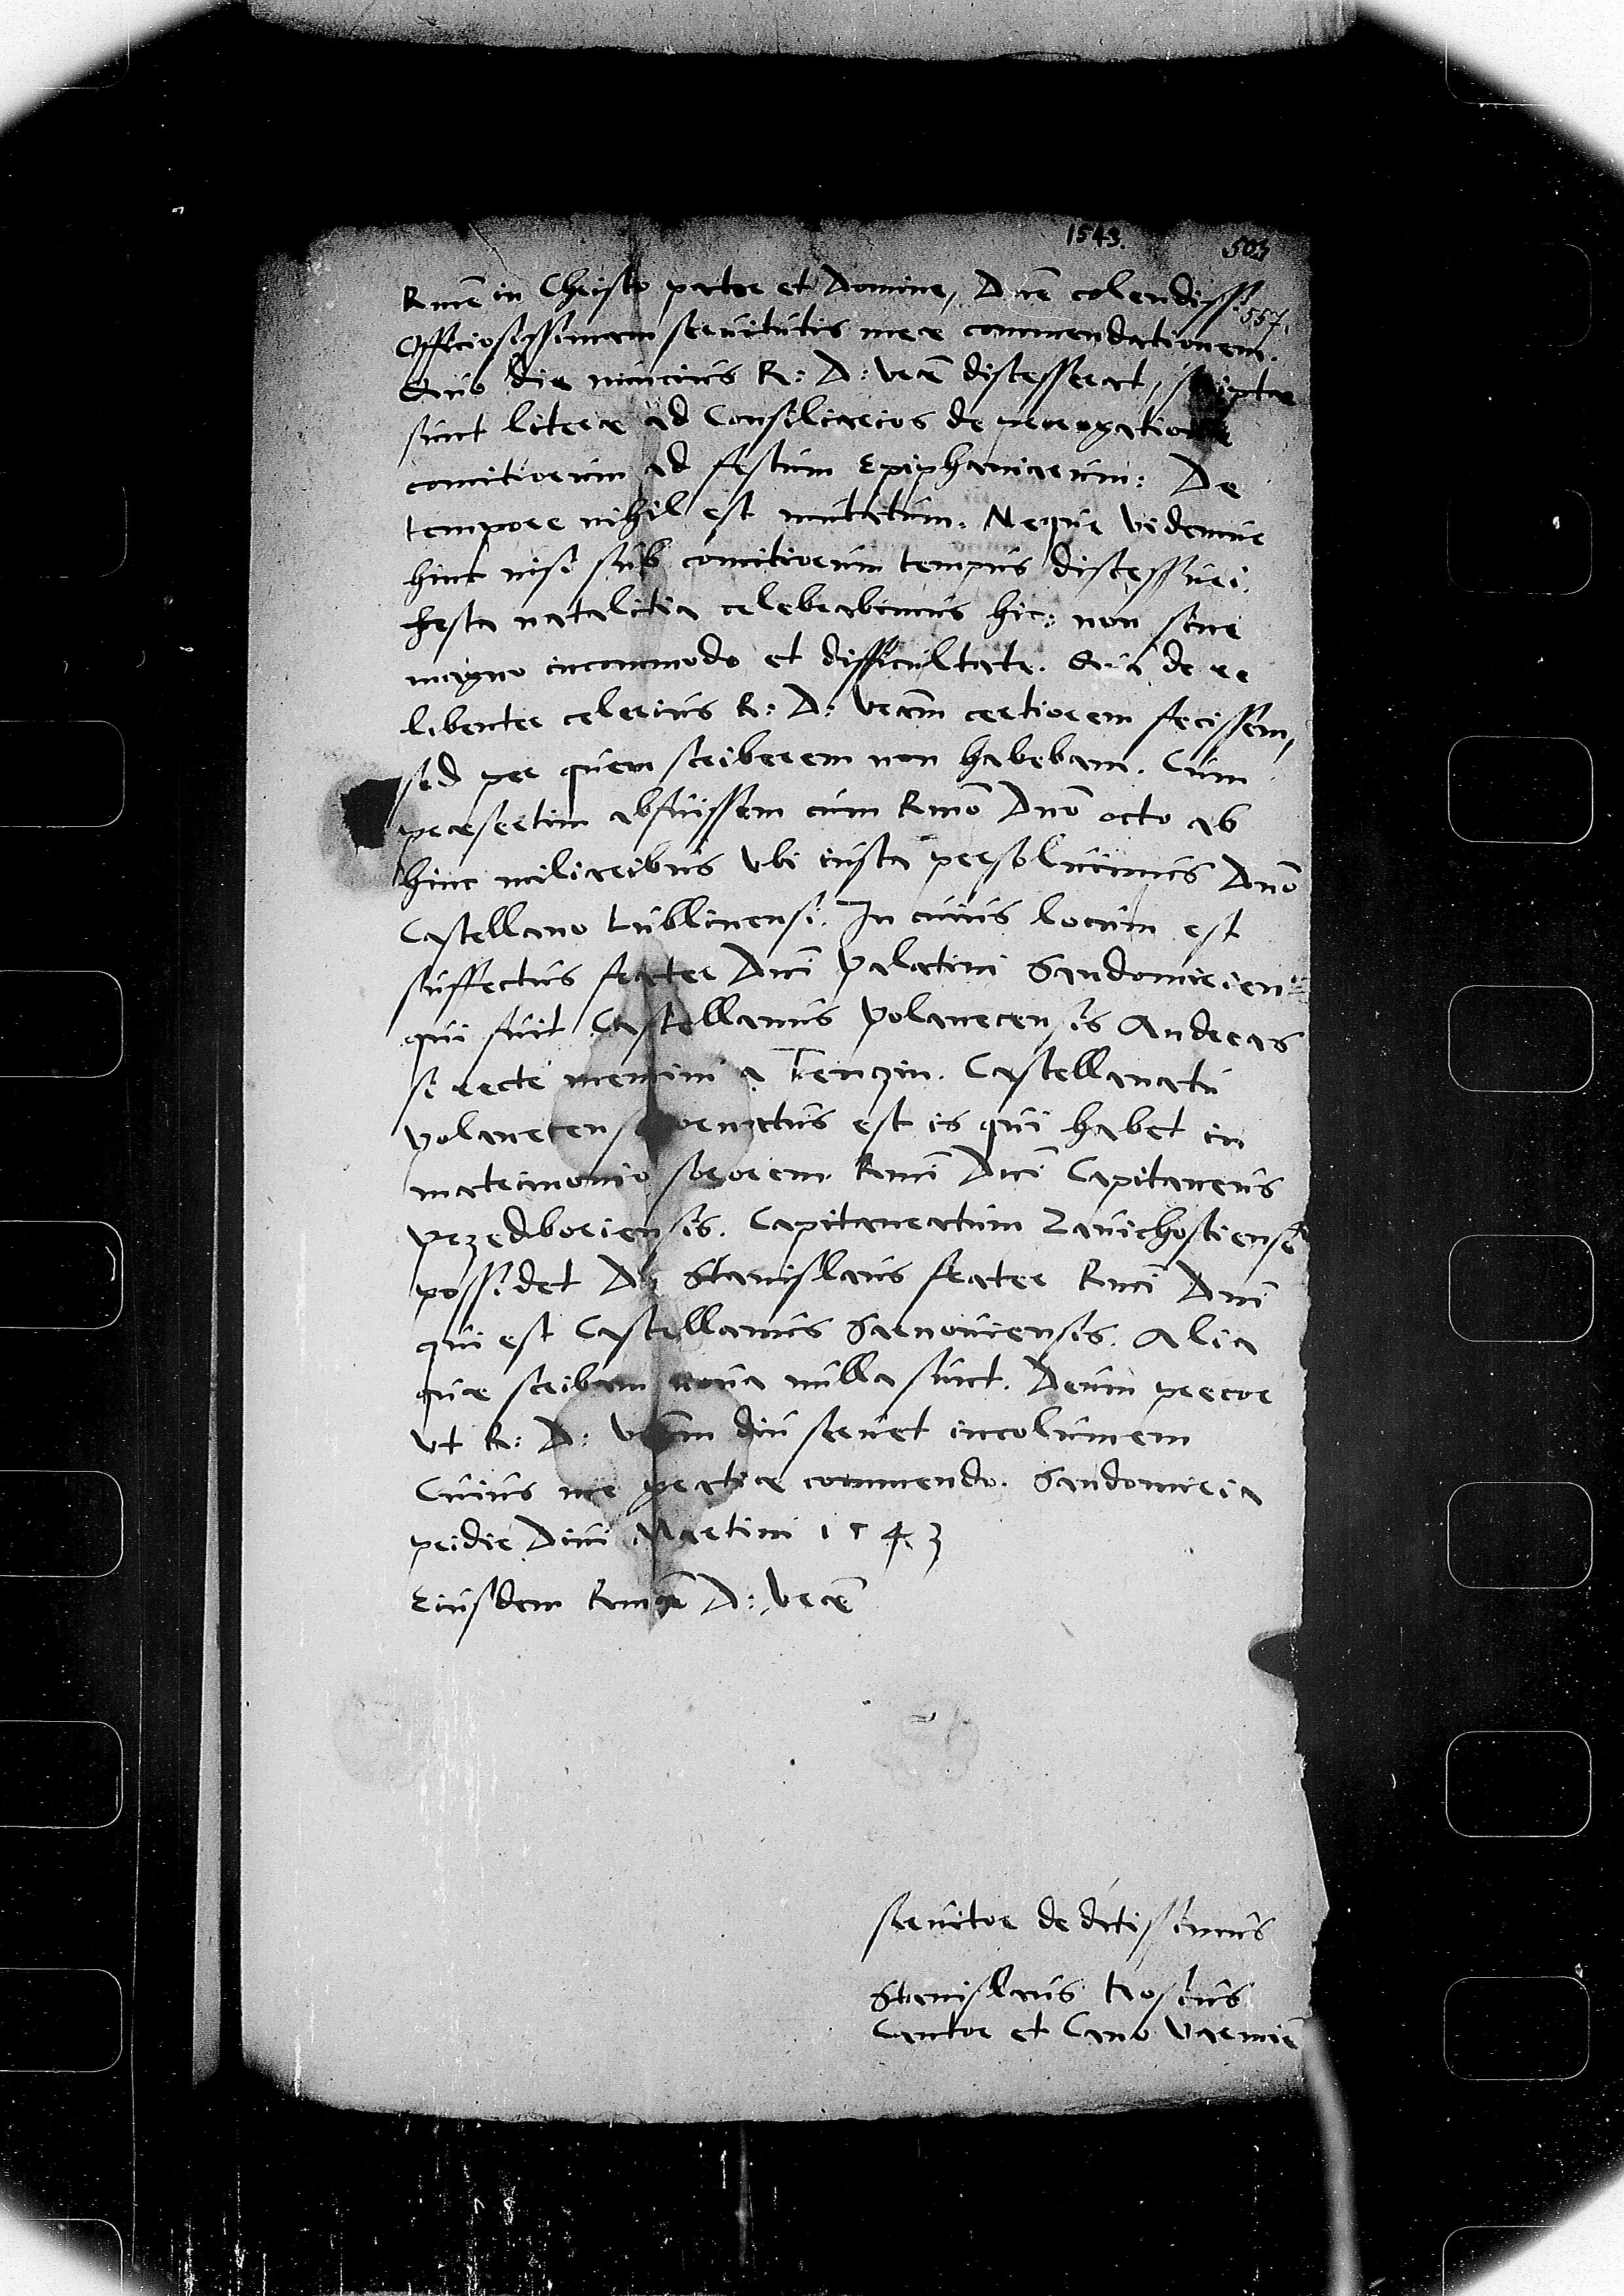 1543.
503
Rme in Christo patre et Domine, Dne colendiss:
557.
Officiosissimam seruitutis meæ commendationem.
Quo die nuncius R: D: vræ discesserat, scriptæ
sunt literæ ad Consiliarios de prorogatione
comitiorum ad festum Epiphaniarum: De
tempore nihil est mutatum. Neque videmur
hinc nisi sub comitiorum tempus discessuri.
Festa natalitia celebrabimus hic: non sine
magno incommodo et difficultate. Qua de re
libenter celerius R: D: vram certiorem fecissem,
sed per quem scriberem non habebam. Cum
præsertim abfuissem cum Rmo Dno octo ab
hinc miliaribus vbi iusta persoluimus Dno
Castellano Lublinensi. In cuius locum est
suffectus frater Dni Palatini Sandomirien:
qui fuit Castellanus Polanecensis Andreas
si recte memini a Tenczin. Castellanatu
Polanecensi ornatus est is qui habet in
matrimonio sororem Rmi Dni Capitaneus
Przedboriensis. Capitaneatum Zauichostiense
possidet D. Stanislaus frater Rmi Dni
qui est Castellanus Sarnouiensis. Alia
quæ scribam noua nulla sunt. Deum precor
vt R: D: vram diu seruet incolumem
Cuius me gratiæ commendo. Sandomiria
pridie Diui Martini 1543
Eiusdem Rmæ D: vræ
seruitor deditissimus
Stanislaus Hosius
Cantor et Cano Varmien